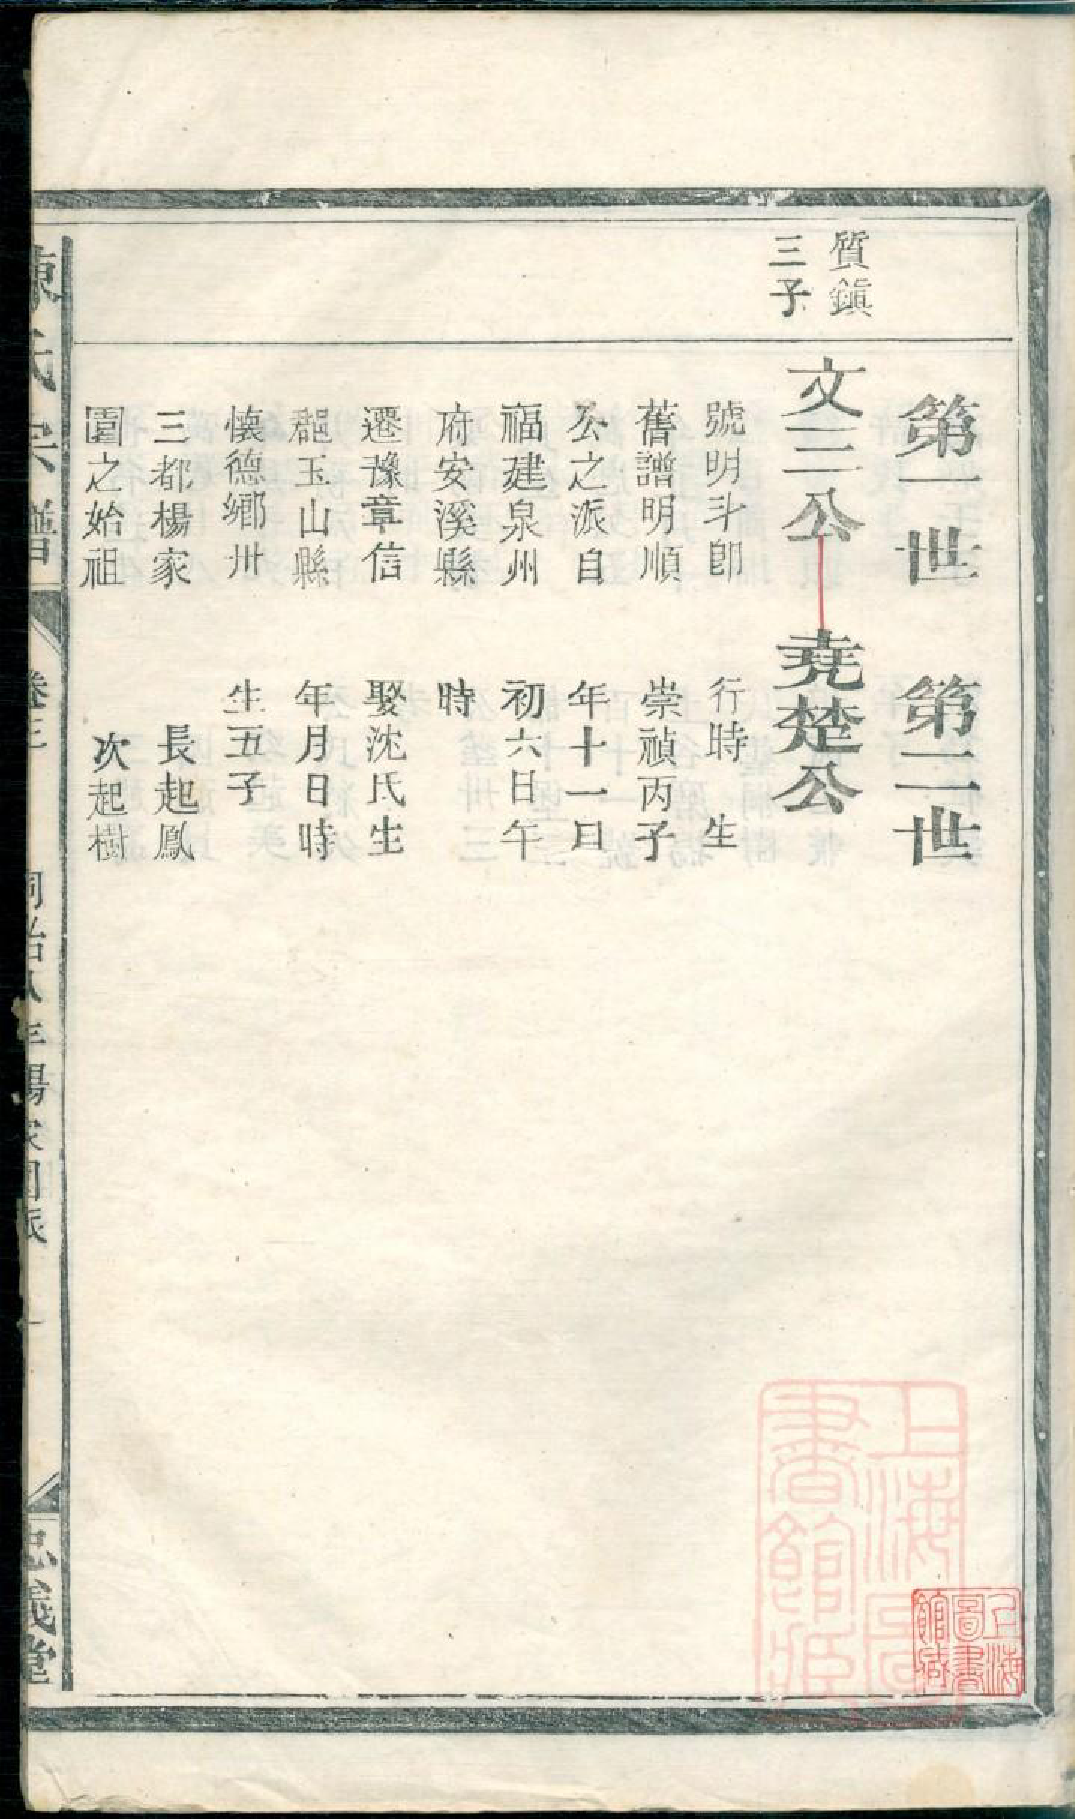 第一世
第二世
質鎮
三子
文三公
堯楚公
號明斗卽
舊譜明順
公之派自
福建泉州
府安溪縣
遷豫章信
郡玉山縣
懷德鄉卅
三都楊家
園之始祖
行時 生
崇禎丙子
年十一月
初六日午
時
娶沈氏生
年月日時
生五子
長起鳳
次起樹
陳氏宗譜
卷三
同治八年楊家園派
一
忠義堂
上海圖書館藏
上海圖書館藏